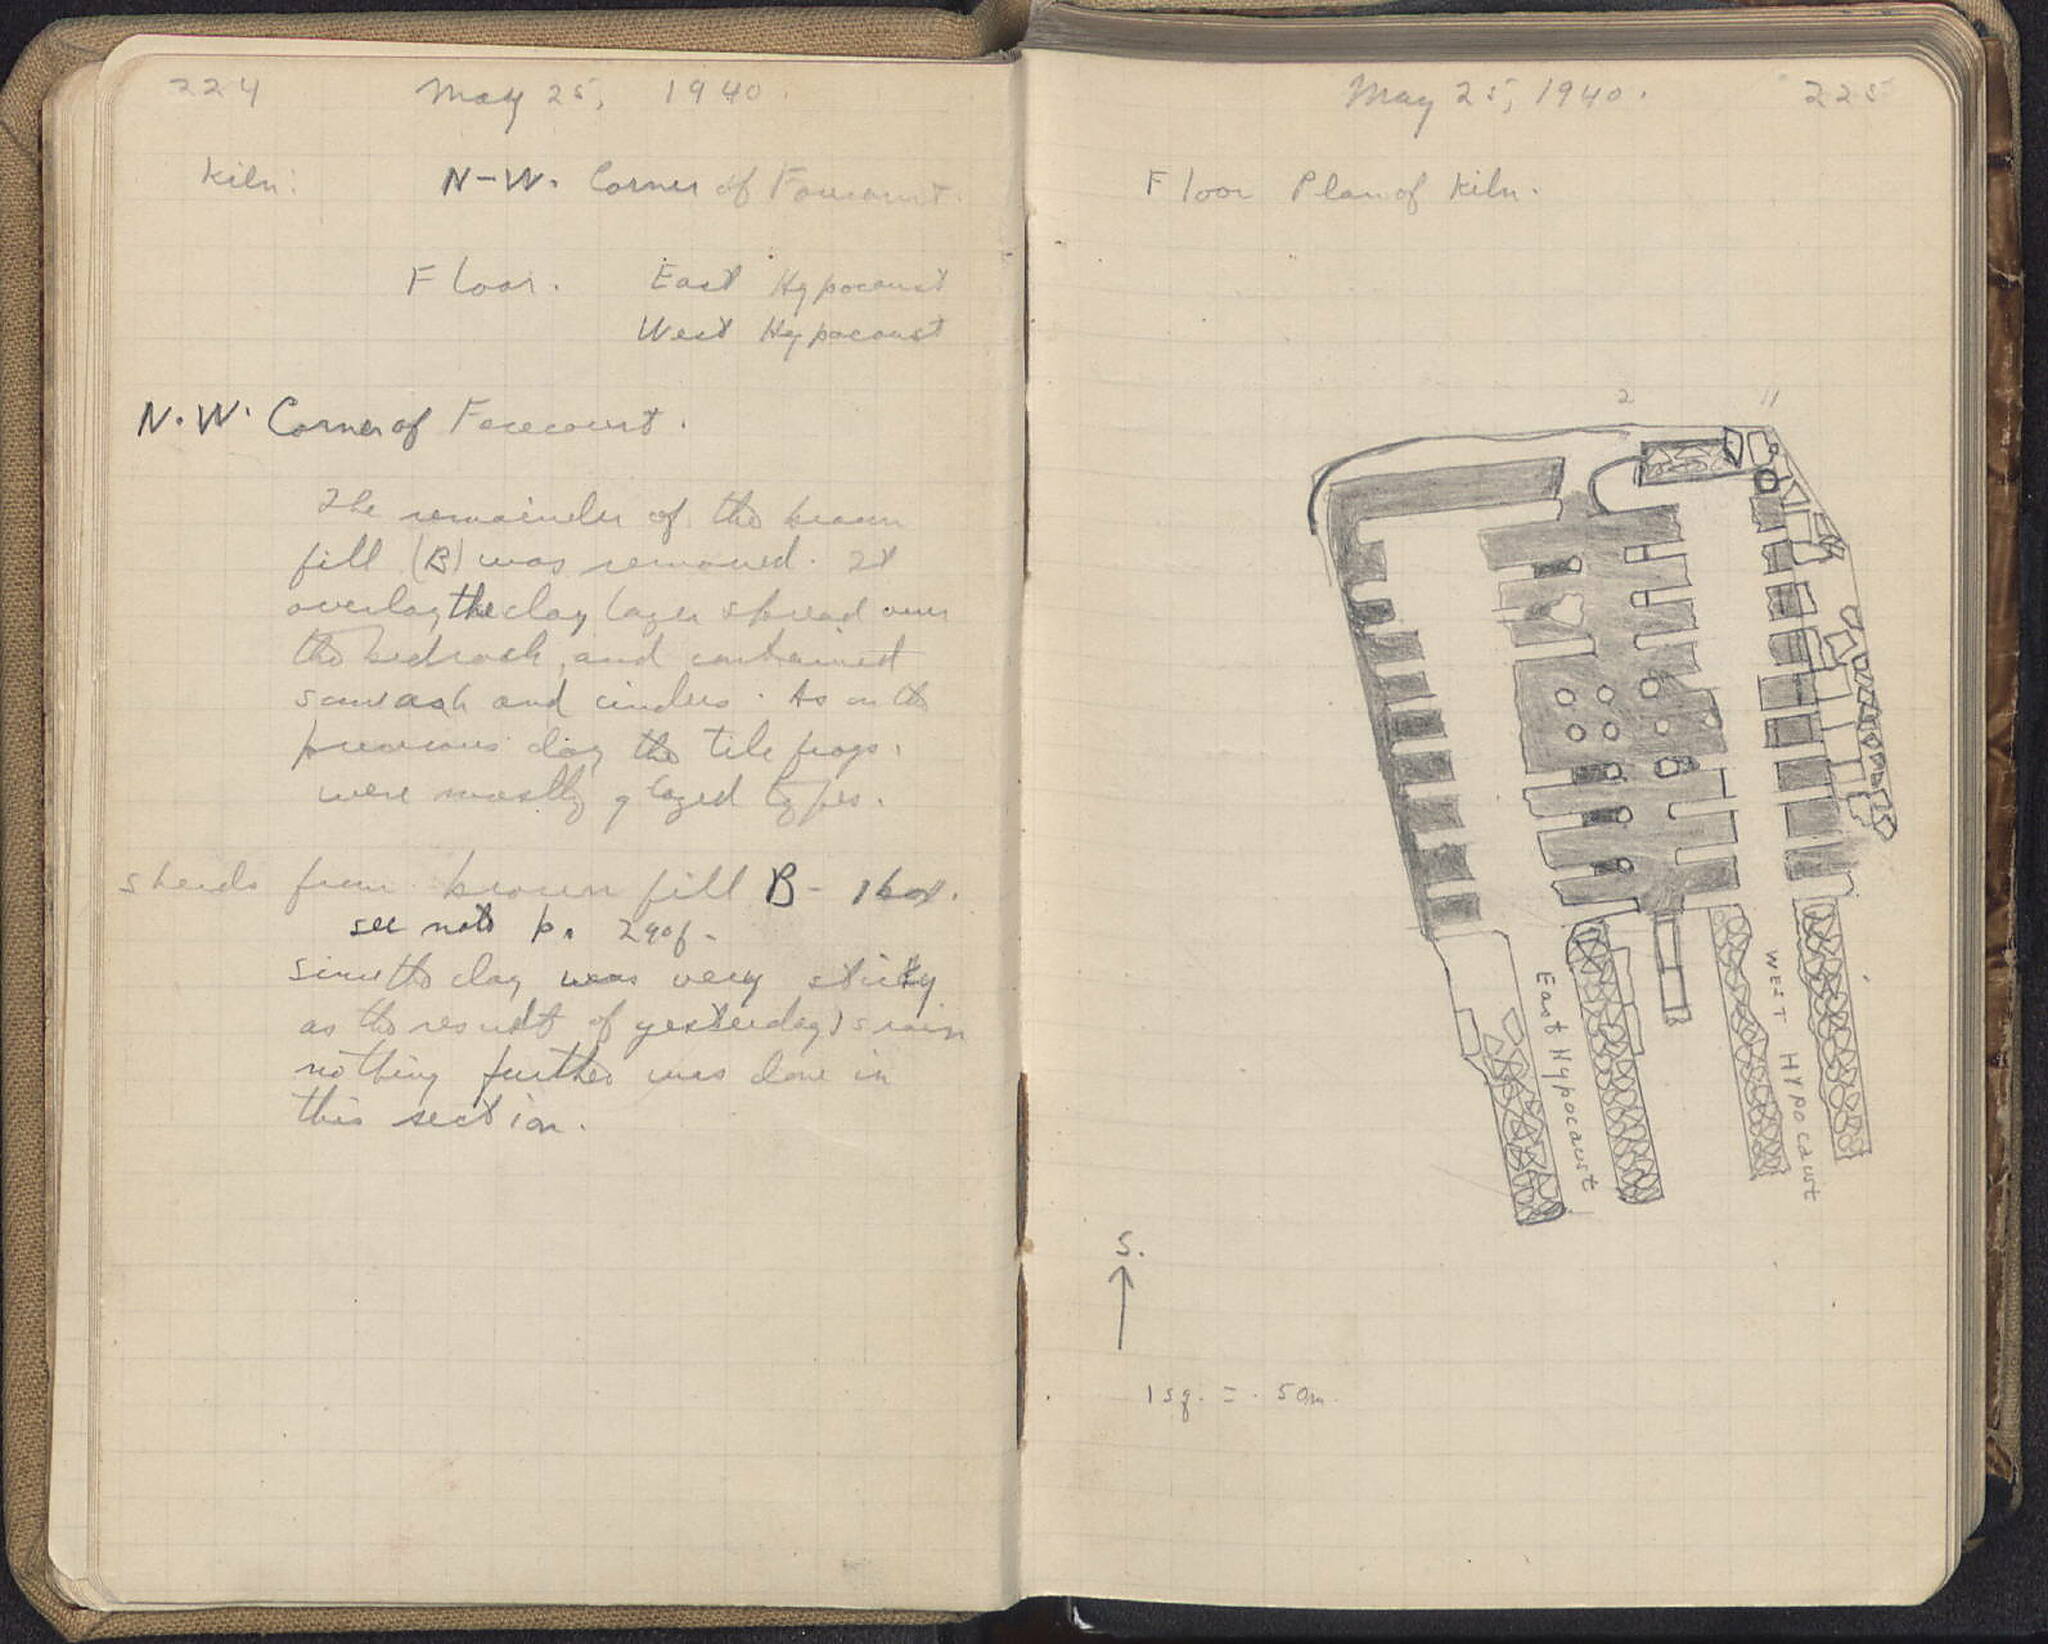 224 May 25, 1940.
Kiln: N-W. Corner of Forecourt.
Floor. East Hypocaust
West Hypocaust
N.W. Corner of Forecourt.
The remainder of the brown
fill (B) was removed. It
overlay the clay layer spread over
the bedrock, and contained
some ash and cinders. As on the
previous day the tile frags.
were mostly glazed types.
sherds from brown fill B - 1 box.
see note p. 290f-
Since the clay was very sticky
as the result of yesterday's rain
nothing further was done in
this section.
May 25, 1940. 225
Floor Plan of Kiln.
2 11
East Hypocaust
WEST HYPOCAUST
S.
1 sq. = .50m.